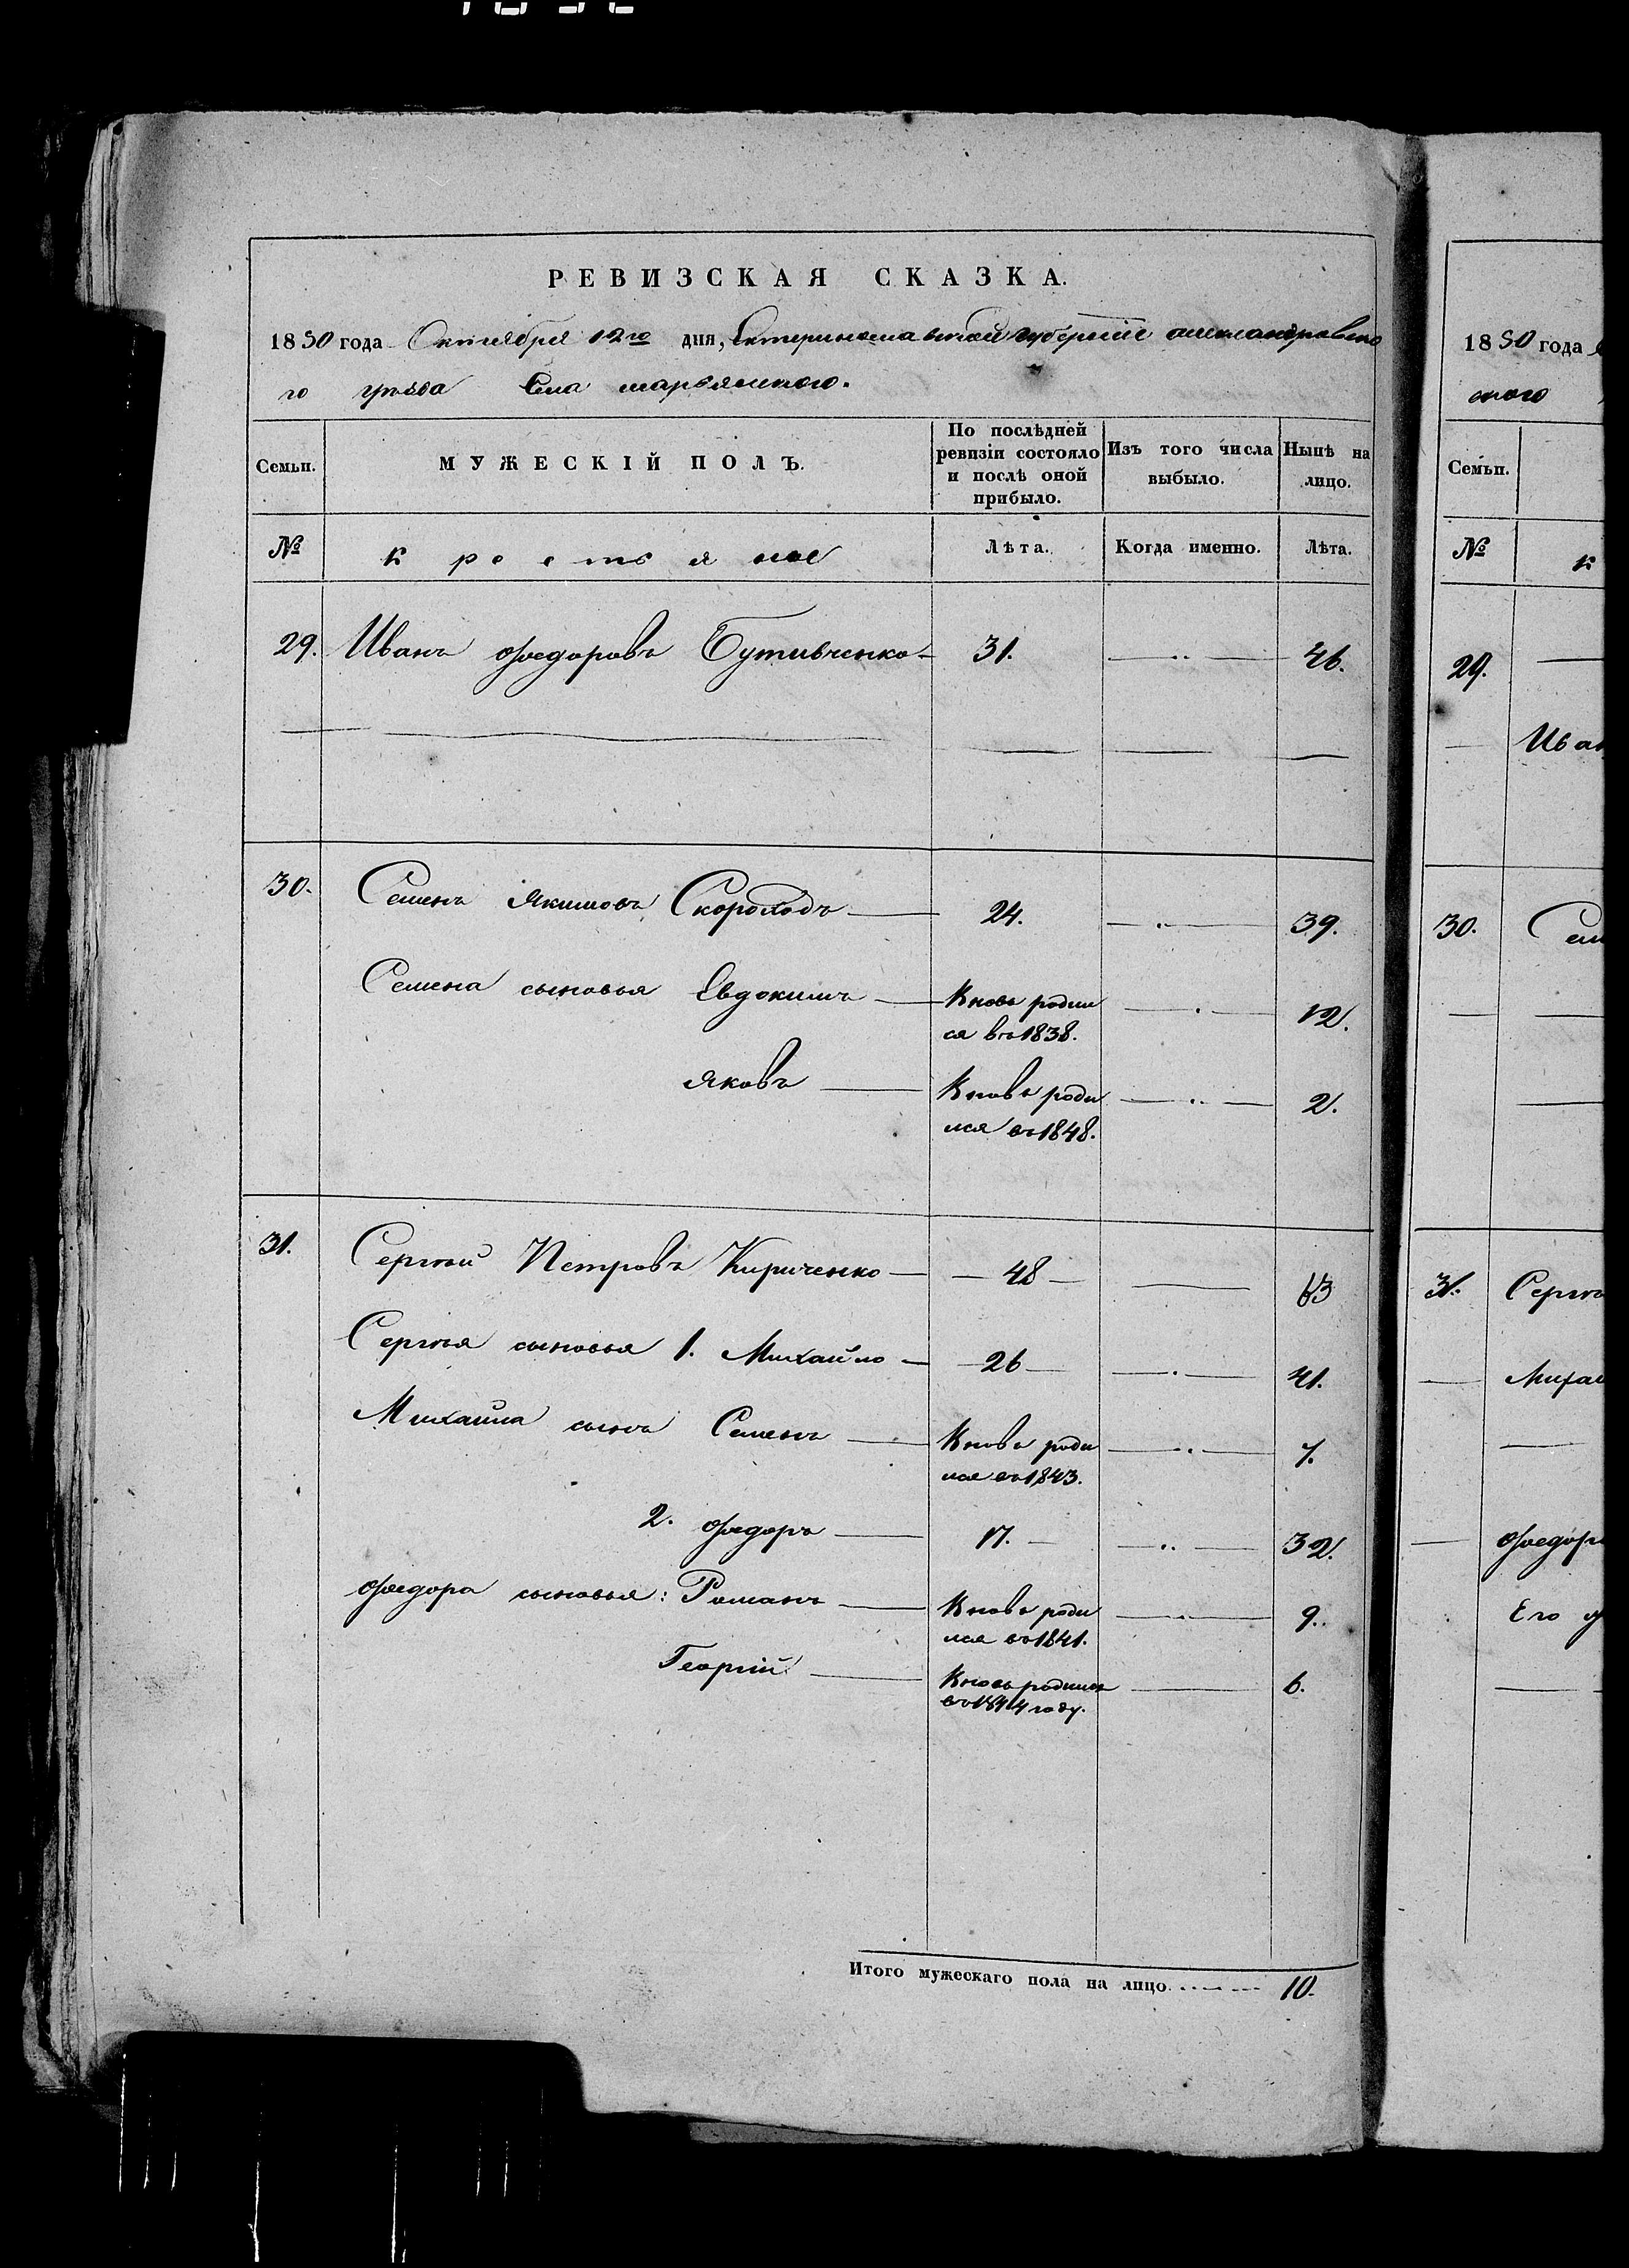 РЕВИЗСКАЯ СКАЗКА.
1850 года Октября 12го дня, Екатеринославской губернии александровско
го уѣзда Села марьянского.
Семьи. МУЖЕСКІЙ ПОЛЪ. По послѣдней ревизіи состояло и послѣ оной прибыло. Изъ того числа выбыло. Нынѣ на лицо.
№ крестьяне Лѣта. Когда именно. Лѣта.
29. Иванъ Федоровъ 31. 46.
30. Семенъ Якимовъ Скороходъ 24. 39.
Семена сыновья Евдокимъ Вновь родил 12.
ся въ 1838.
Яковъ Вновь роди 2.
лся въ 1848.
31. Сергѣй Петровъ Кириченко 48 63
Сергѣя сыновья 1. Михайло 26 41.
Михайла сынъ Семенъ Вновь роди 7.
лся въ 1843.
2. Федоръ 17. 32.
Федора сыновья: Романъ Вновь роди 9.
лся въ 1841.
Георгій Вновь родился 6.
въ 1844 году.
Итого мужескаго пола на лицо 10.
1850 года
ского
Семьи.
№ к
29.
Иван
30. Сем
31. Сергѣ
Михаи
Федор
Его